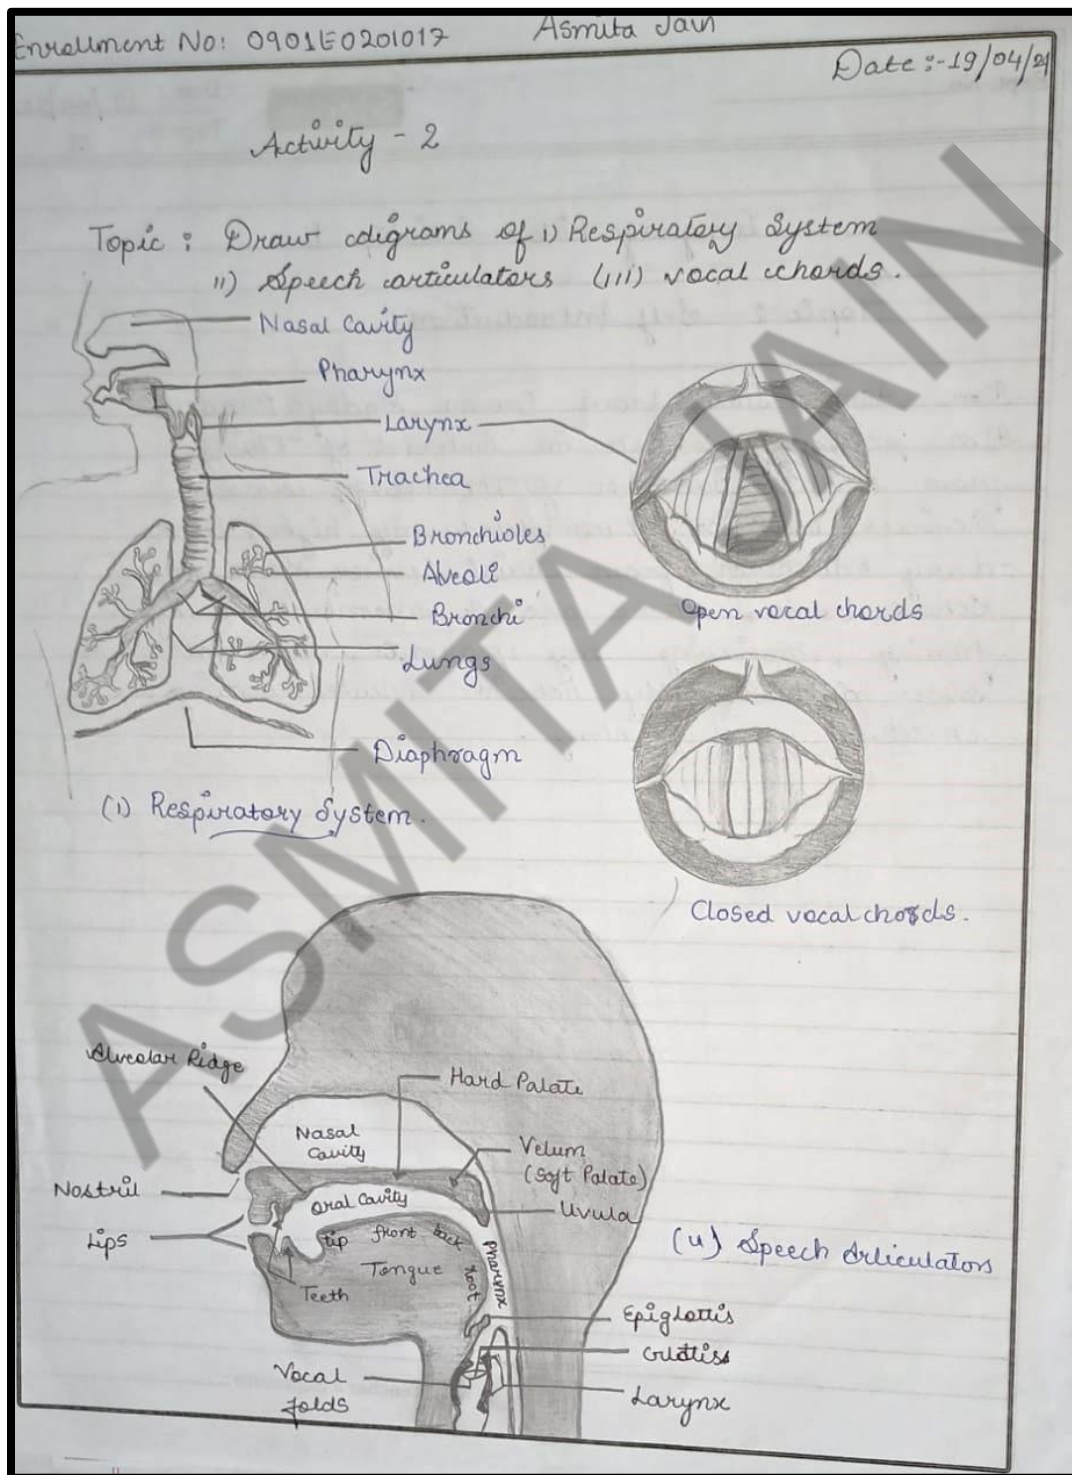 Enrollment No: 0901EO201017 Asmita Jain
Date :- 19/04/21
Activity - 2
Topic : Draw digrams of i) Respiratory System
ii) Speech articulators (iii) vocal chords.
Nasal Cavity
Pharynx
Larynx
Trachea
Bronchioles
Alveoli
Bronchi
Lungs
Diaphragm
(i) Respiratory System.
Open vocal chords
Closed vocal chords.
Alveolar Ridge
Hard Palate
Nasal
Cavity
Velum
(Soft Palate)
Nostril
Oral Cavity
Uvula
Lips
tip front back
root
Tongue
Teeth
Pharynx
(ii) Speech Articulators
Epiglottis
Vocal
folds
Larynx
ASMITA JAIN